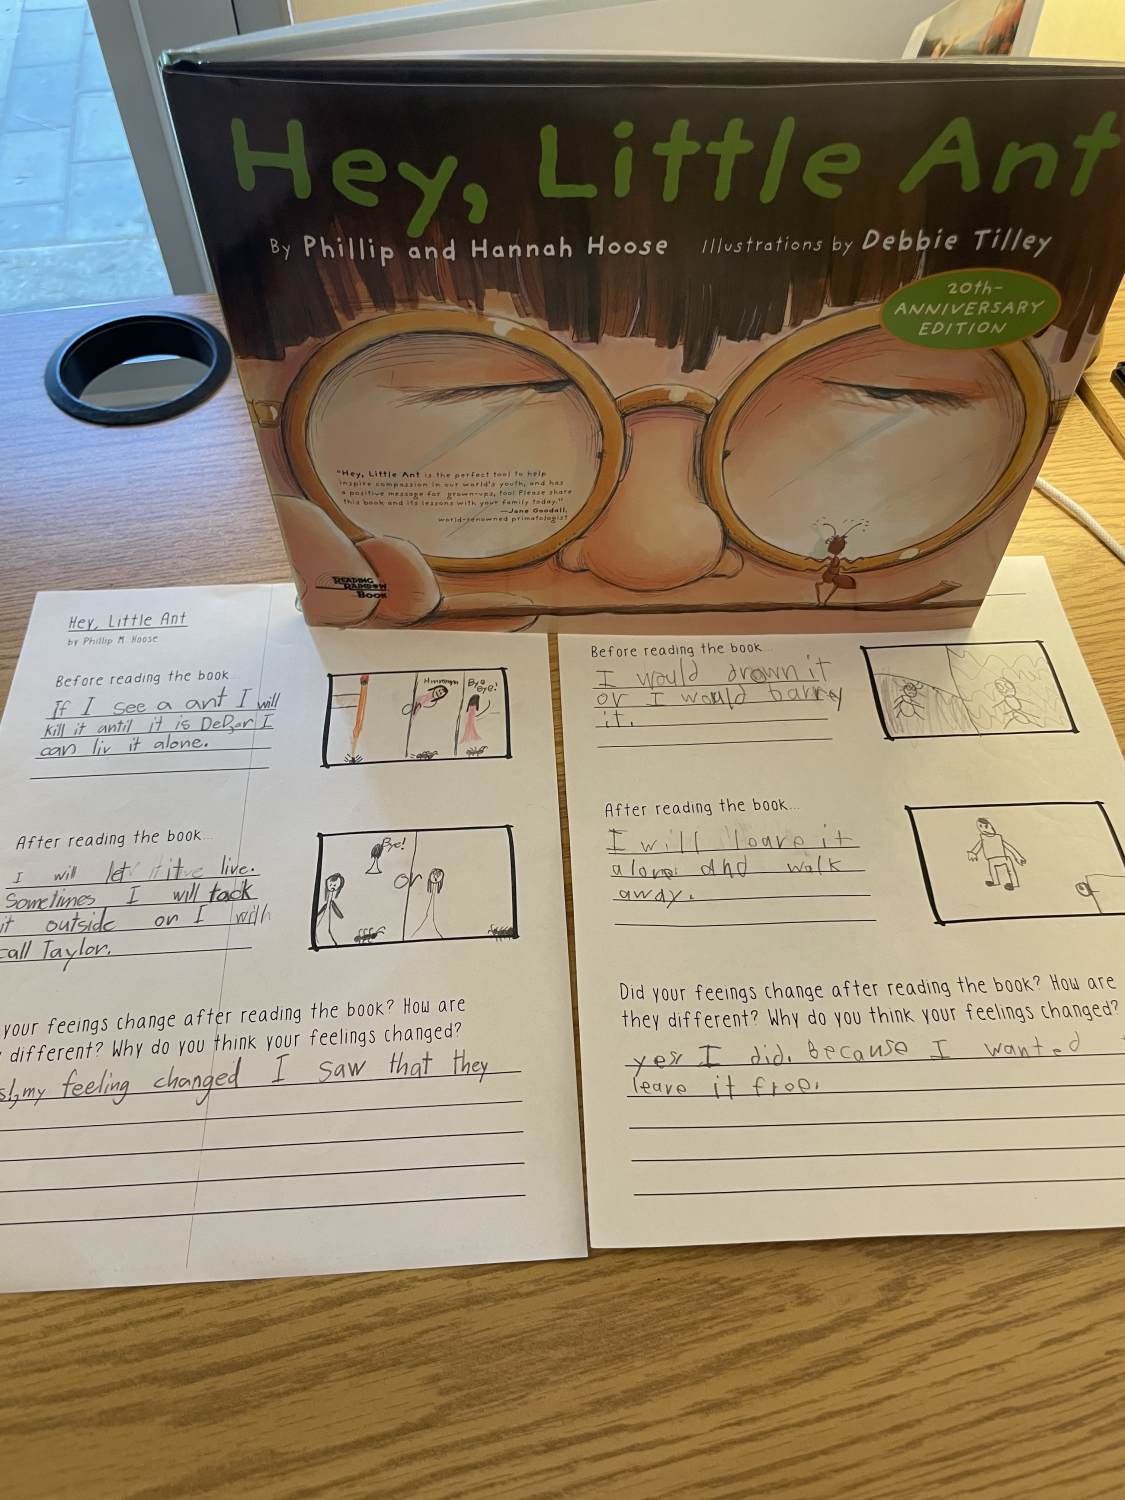 Hey, Little Ant
By Phillip and Hannah Hoose Illustrations by Debbie Tilley
20th-
ANNIVERSARY
EDITION
"Hey, Little Ant is the perfect tool to help
inspire compassion in our world's youth, and has
a positive message for grown-ups, too! Please share
this book and its lessons with your family today."
—Jane Goodall,
world-renowned primatologist
READING
RAINBOW
BOOK
Hey, Little Ant
by Phillip M Hoose
Before reading the book...
If I see a ant I will
kill it antil it is DeD, or I
can liv it alone.
or
Hmmmmm
Bye
Bye!
After reading the book...
I will let it live.
Sometimes I will tack
it outside or I with
call Taylor.
Bye!
or
your feeings change after reading the book? How are
different? Why do you think your feelings changed?
my feeling changed I saw that they
Before reading the book...
I would drown it
or I would barrey
it.
After reading the book...
I will leave it
alone and walk
away.
Did your feeings change after reading the book? How are
they different? Why do you think your feelings changed?
yes I did. Because I wanted
leave it free.